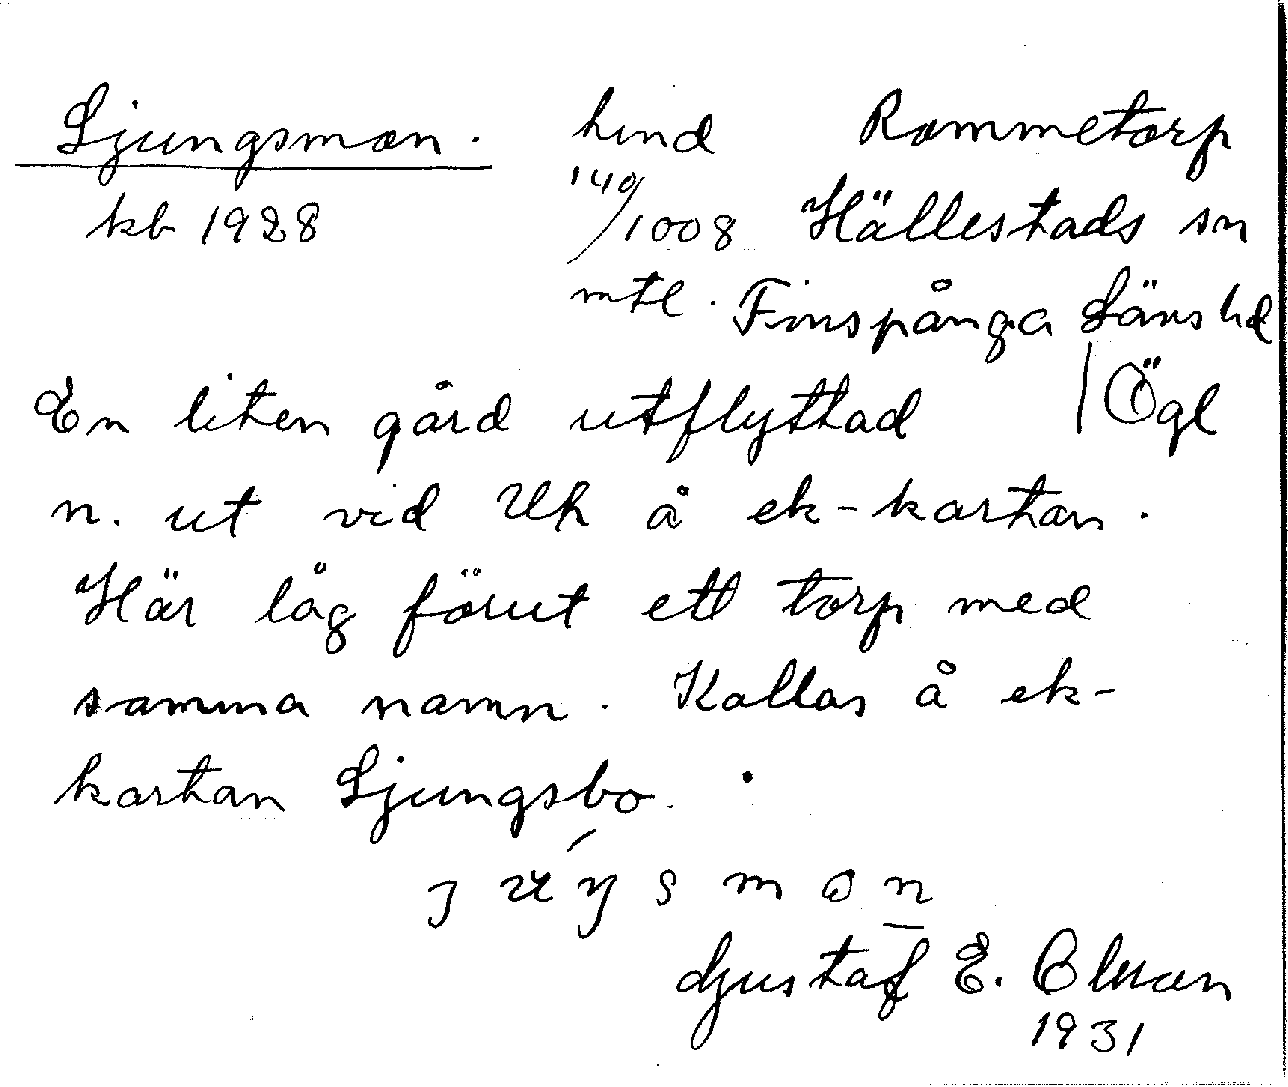 Ljungsmon. hmd Rommetorp
kb 1928 140/1008 Hällestads sn
mtl. Finspånga Läns hd
En liten gård utflyttad / Ögl
n. ut vid Uh å ek-kartan.
Här låg förut ett torp med
samma namn. Kallas å ek-
kartan Ljungsbo.
s m o n
Gustaf E.
1931